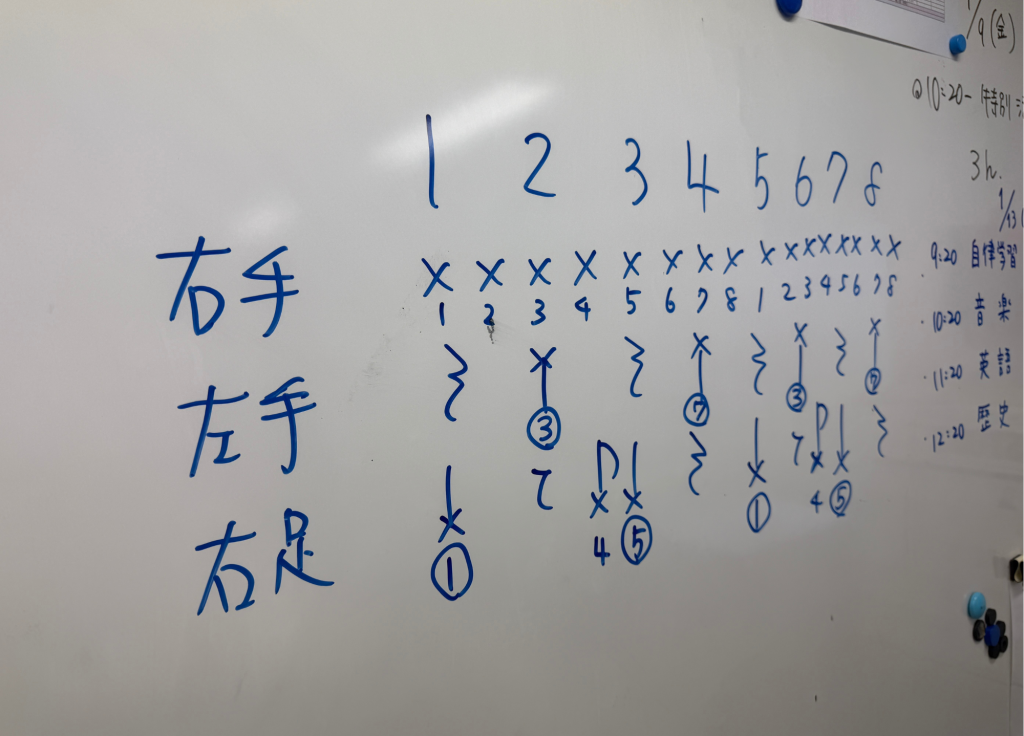 1 2 3 4 5 6 7 8
右手 × × × × × × × × × × × × × × × ×
1 2 3 4 5 6 7 8 1 2 3 4 5 6 7 8
左手 × × × ×
③ ⑦ ③ ⑦
右足 × × × × × ×
① 4 ⑤ ① 4 ⑤
1/9(金)
10:20- 特別
3h.
1/13(
9:20 自律学習
・10:20 音楽
・11:20 英語
・12:20 歴史